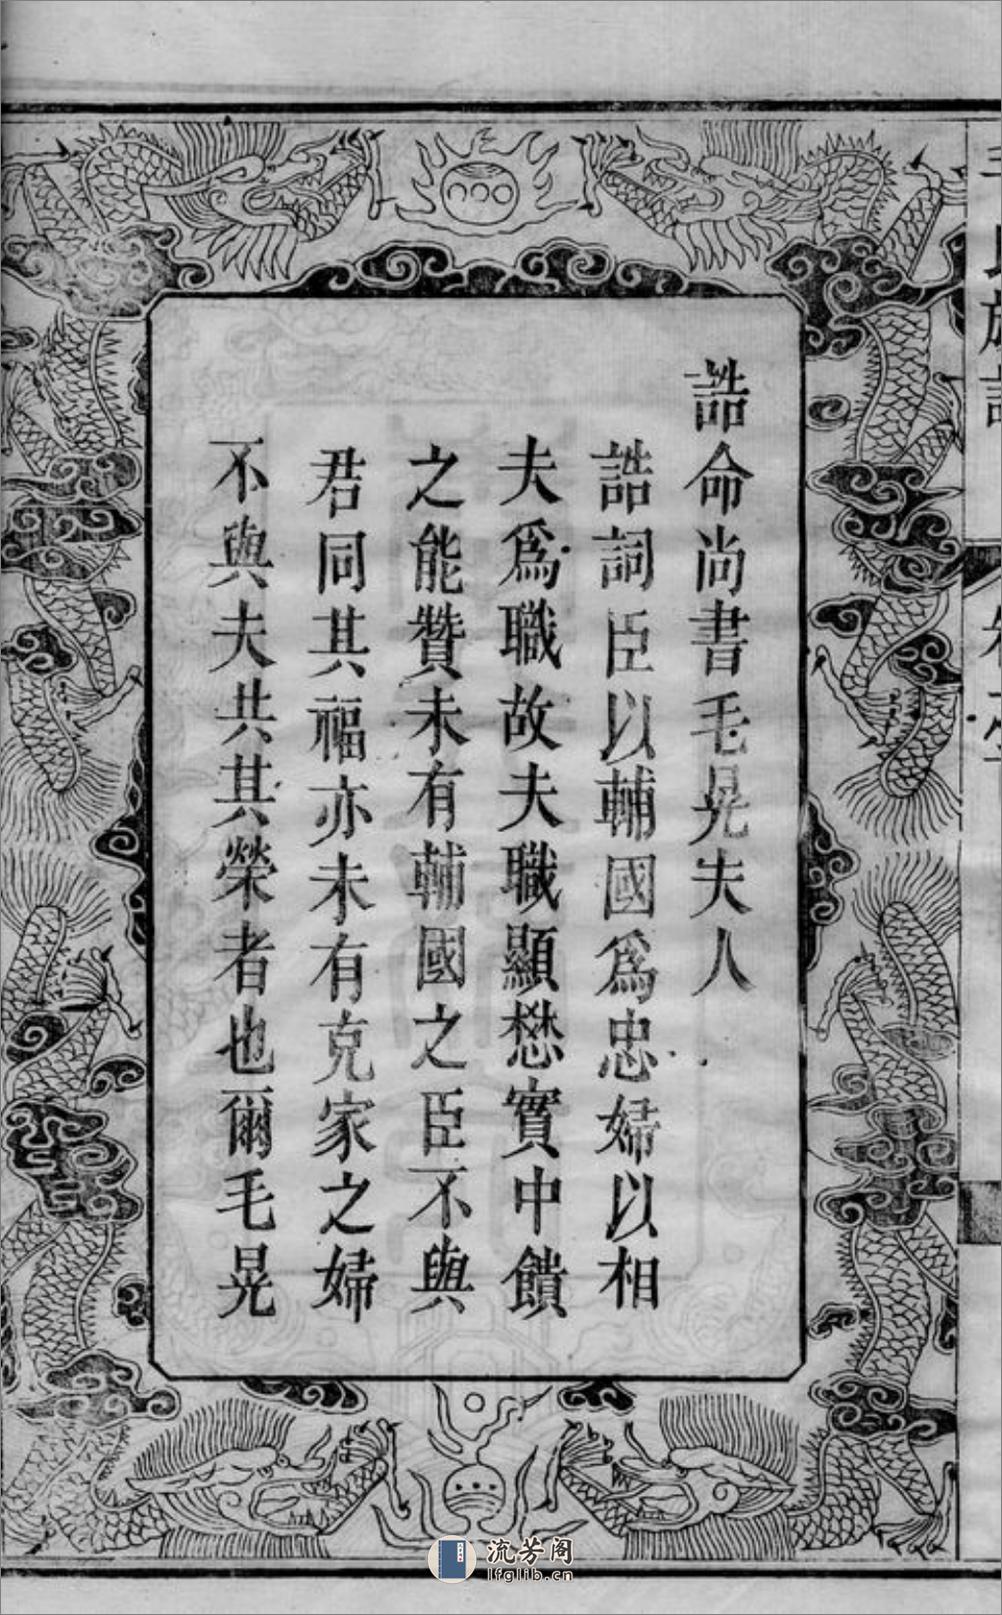 誥命尚書毛晃夫人
誥詞臣以輔國爲忠婦以相
夫爲職故夫職顯懋實中饋
之能贊未有輔國之臣不與
君同其福亦未有克家之婦
不與夫共其榮者也爾毛晃
流芳阁
lfglib.cn